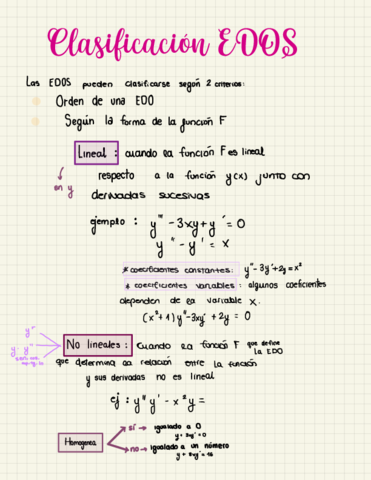 Clasificación EDOS
Las EDOS pueden clasificarse según 2 criterios:
Orden de una EDO
Según la forma de la función F
Lineal: cuando la función F es lineal
en y
respecto a la función y(x) junto con
derivadas sucesivas
ejemplo: y'' - 3xy + y' = 0
y'' - y' = x
* coeficientes constantes: y'' - 3y' + 2y = x²
* coeficientes variables: algunos coeficientes
dependen de la variable x.
(x² + 1) y'' - 3xy' + 2y = 0
No lineales: Cuando la función F que define
la EDO
que determina la relación entre la función
y sus derivadas no es lineal
ej: y'' y' - x² y =
Homogenea
sí → igualado a 0
no → igualado a un número